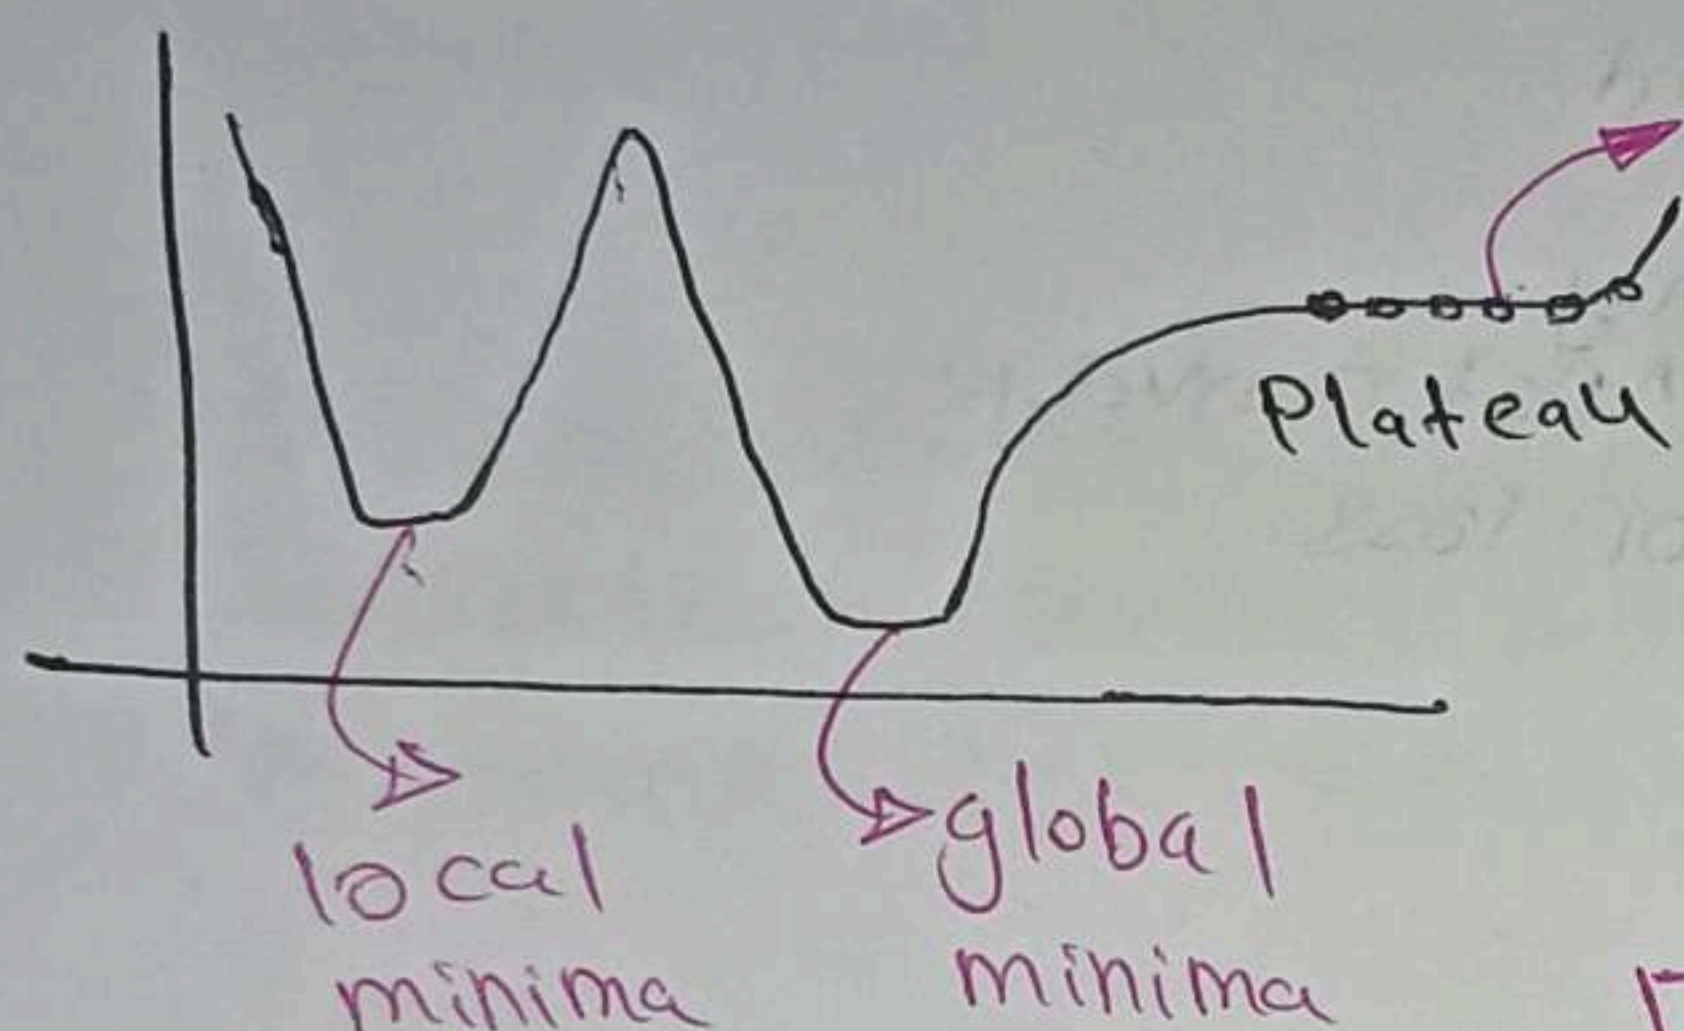 Plateau
local
minima
global
minima